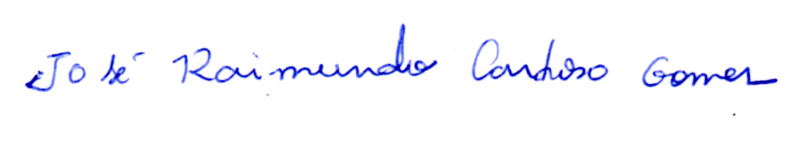 José Raimundo Cardoso Gomes